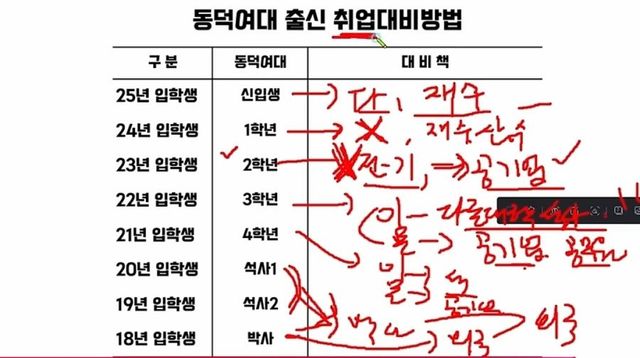 동덕여대 출신 취업대비방법
구 분 동덕여대 대 비 책
25년 입학생 신입생 단, 재수
24년 입학생 1학년 재수산수
23년 입학생 2학년 전-기, ⇒ 공기업
22년 입학생 3학년 이 - 다른대학
21년 입학생 4학년 문 → 공기업
20년 입학생 석사1
19년 입학생 석사2 공기업
18년 입학생 박사 박사 외국 외국